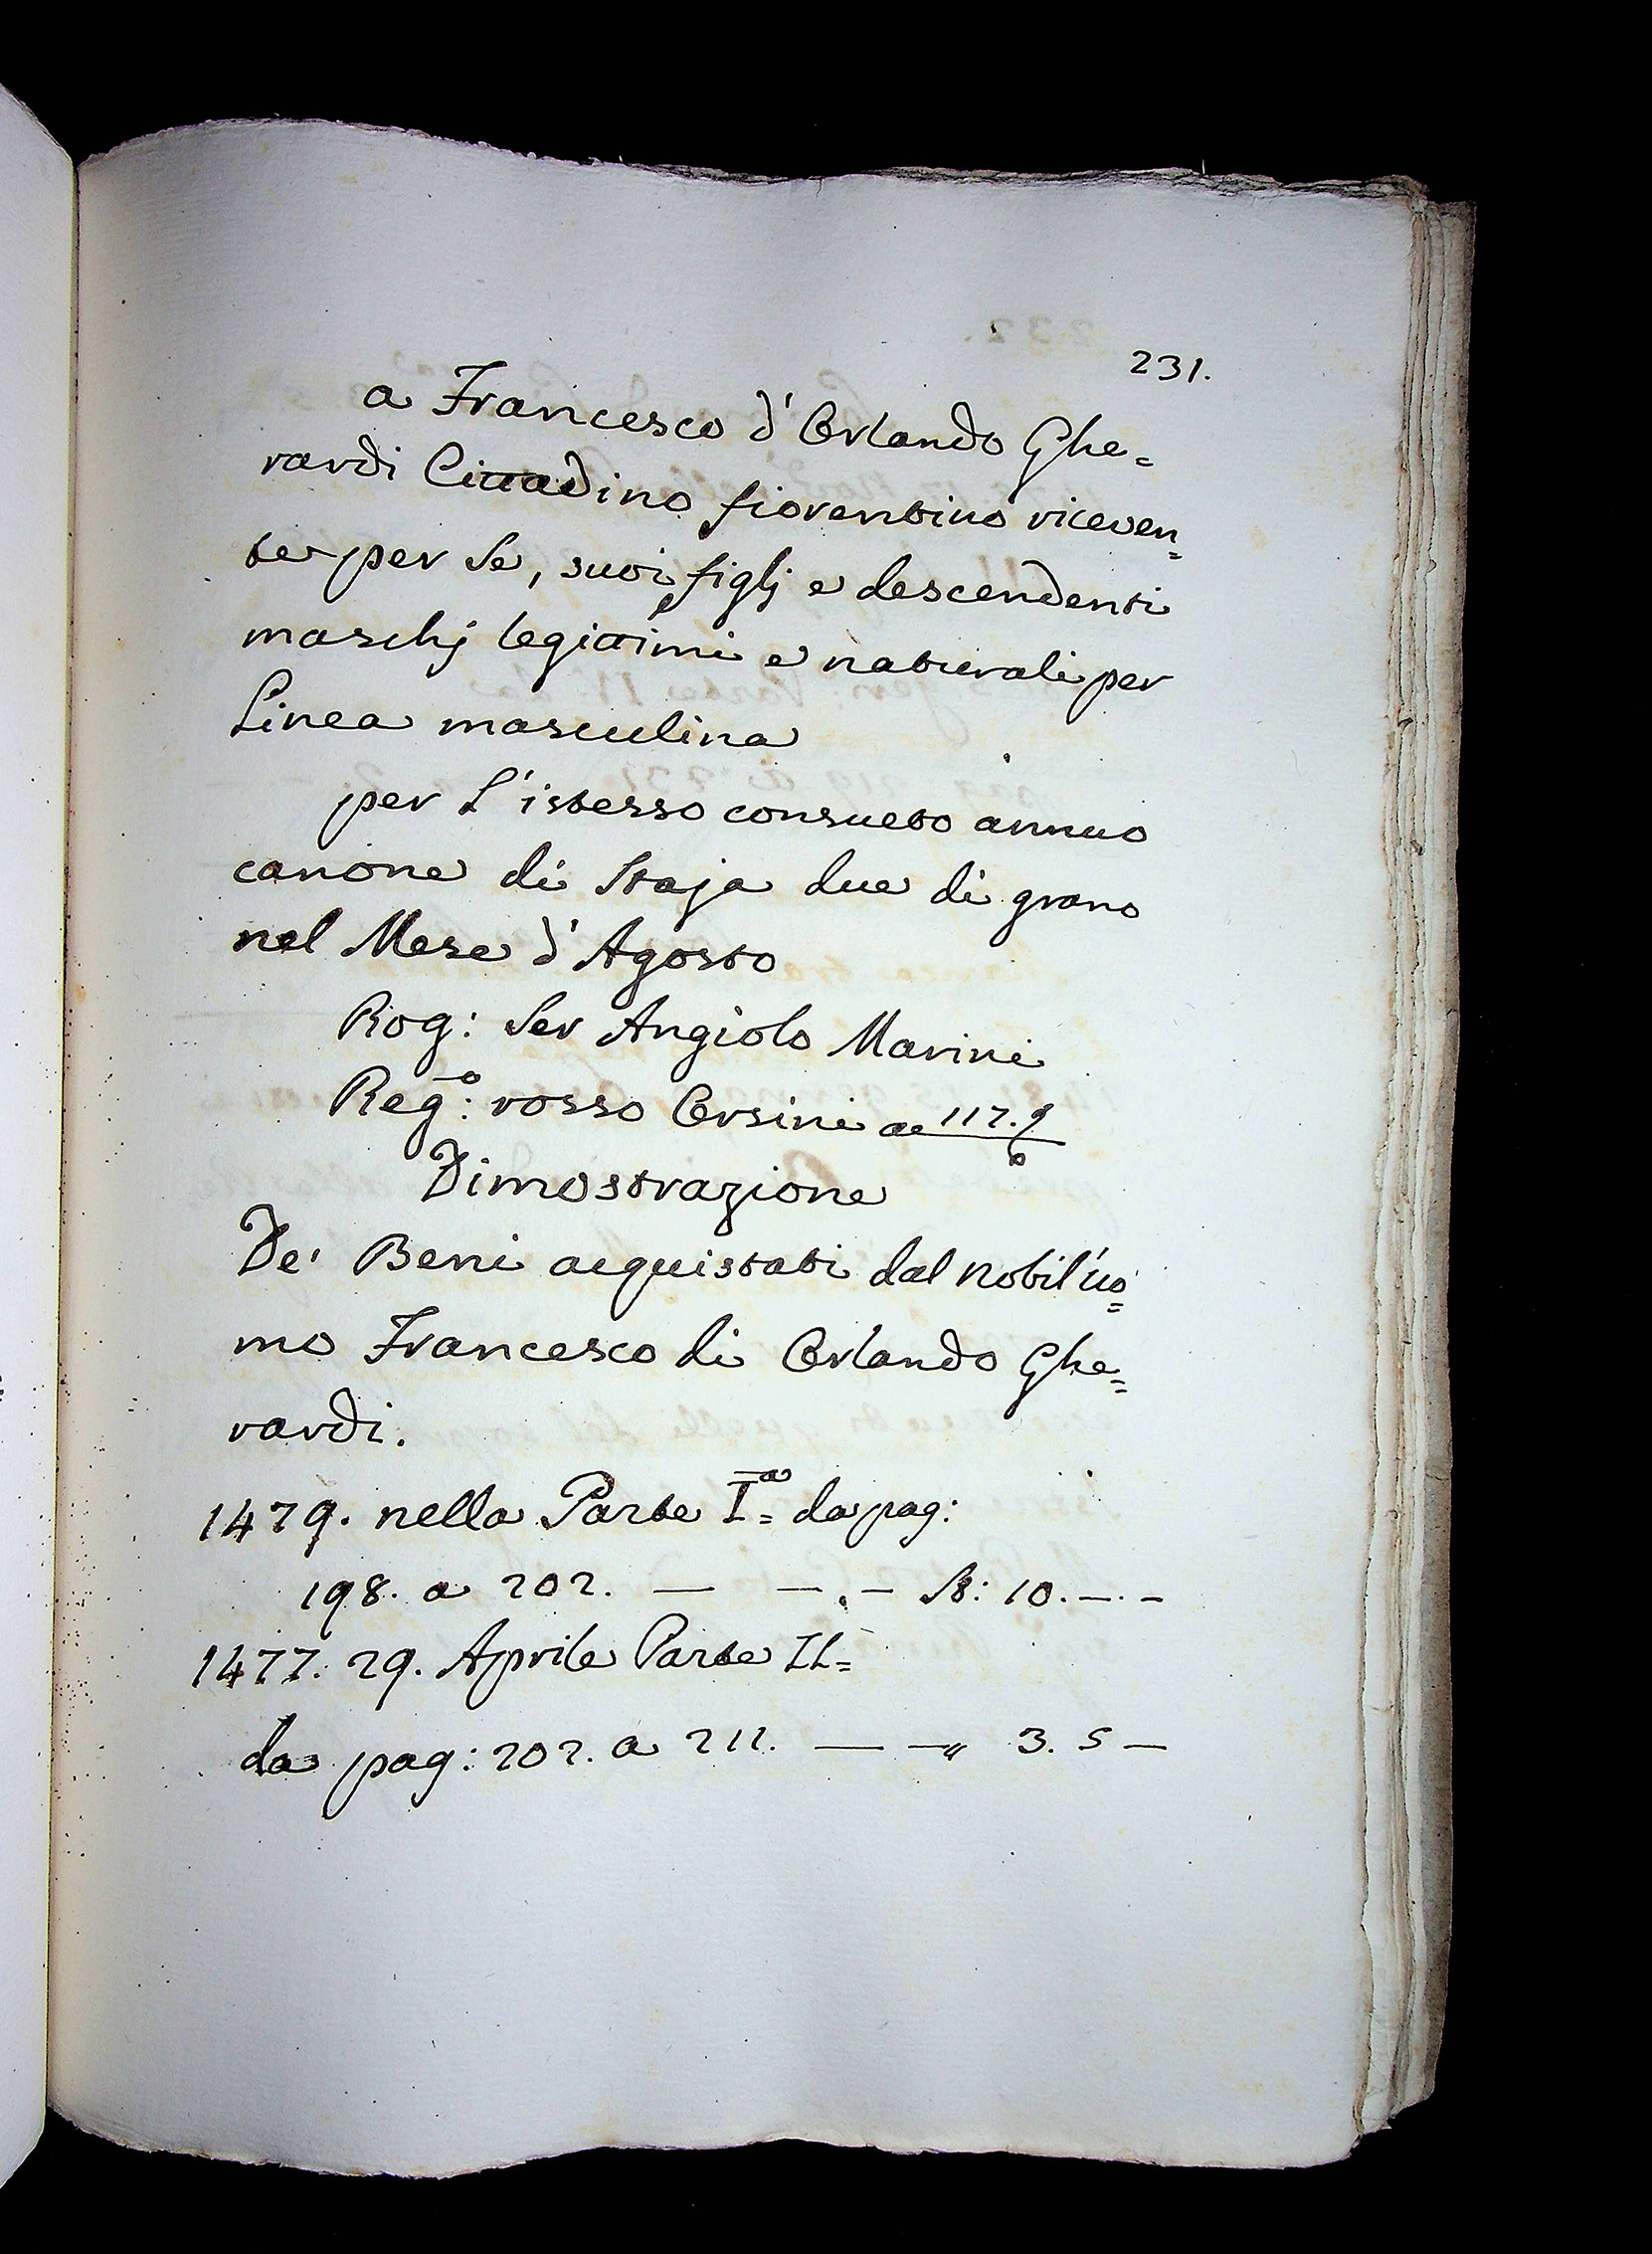 231.
a Francesco d'Orlando Ghe=
rardi Cittadino fiorentino riceven=
te per se, suoi figlj e descendenti
maschj legittimi e naturali per
Linea masculina
per l'istesso consueto annuo
canone di Staja due di grano
nel Mese d'Agosto
Rog: Ser Angiolo Marini
Reg:o rosso Orsini ac 117.
Dimostrazione
De' Beni acquistati dal nobil'uo=
mo Francesco di Orlando Ghe=
rardi.
1479. nella Parte I=a da pag:
198. a 202. — — . — St: 10. — . —
1477. 29. Aprile Parte II=
da pag: 202. a 211. — — " 3. 5 —